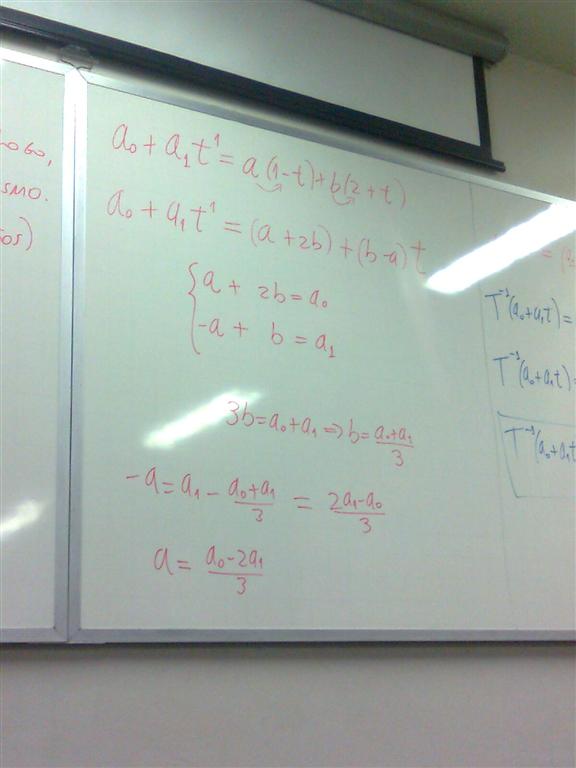 ISMO.
a₀ + a₁t¹ = a(1-t) + b(2+t)
a₀ + a₁t¹ = (a + 2b) + (b-a)t
{a + 2b = a₀
-a + b = a₁
3b = a₀ + a₁ ⇒ b = (a₀+a₁)/3
-a = a₁ - (a₀+a₁)/3 = (2a₁-a₀)/3
a = (a₀-2a₁)/3
T⁻¹(a₀+a₁t) =
T⁻¹(a₀+a₁t) =
T⁻¹(a₀+a₁t